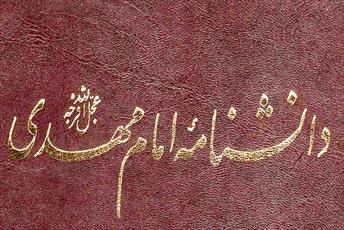 دانشنامهٔ امام مهدی عجّل الله فرجه